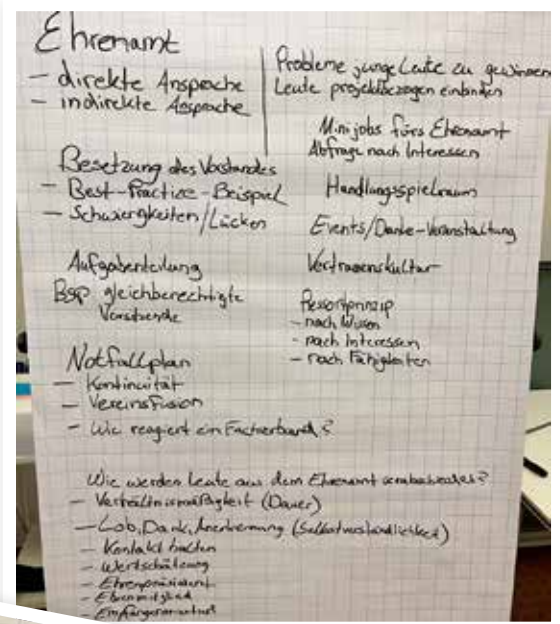 Ehrenamt
- direkte Ansprache
- indirekte Ansprache
Besetzung des Vorstandes
- Best-Practice-Beispiel
- Schwierigkeiten/Lücken
Aufgabenteilung
Bsp gleichberechtigte
Vorsitzende
Notfallplan
- Kontinuität
- Vereinsfusion
- Wie reagiert ein Fachverband?
Probleme junge Leute zu gewinnen
Leute projektbezogen einbinden
Minijobs fürs Ehrenamt
Abfrage nach Interessen
Handlungsspielraum
Events/Danke-Veranstaltung
Vertrauenskultur
Ressortprinzip
- nach Wissen
- nach Interessen
- nach Fähigkeiten
Wie werden Leute aus dem Ehrenamt verabschiedet?
- Verhältnismäßigkeit (Dauer)
- Lob, Dank, Anerkennung (Selbstverständlichkeit)
- Kontakt halten
- Wertschätzung
- Ehrenpräsident
- Ehrenmitglied